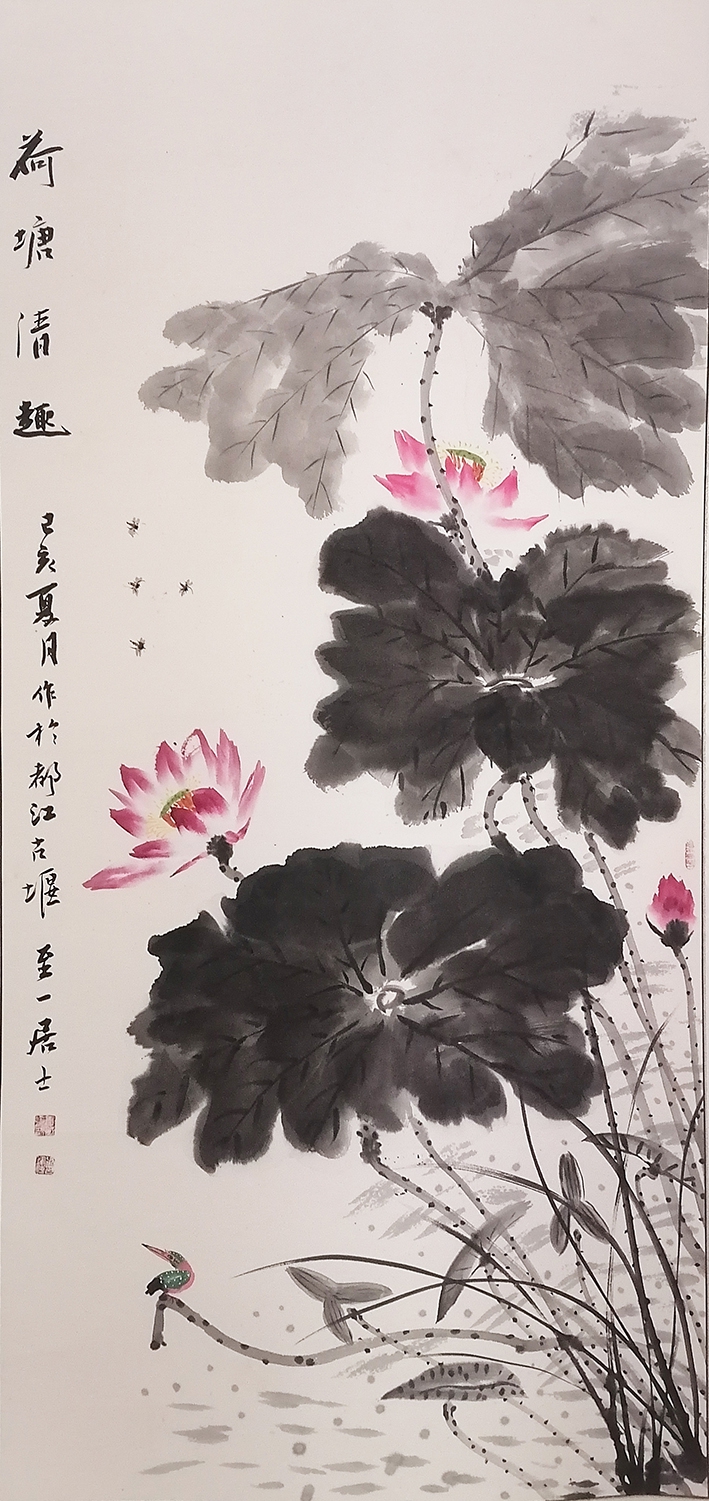 荷塘清趣
己亥夏月作於都江古堰 至一居士